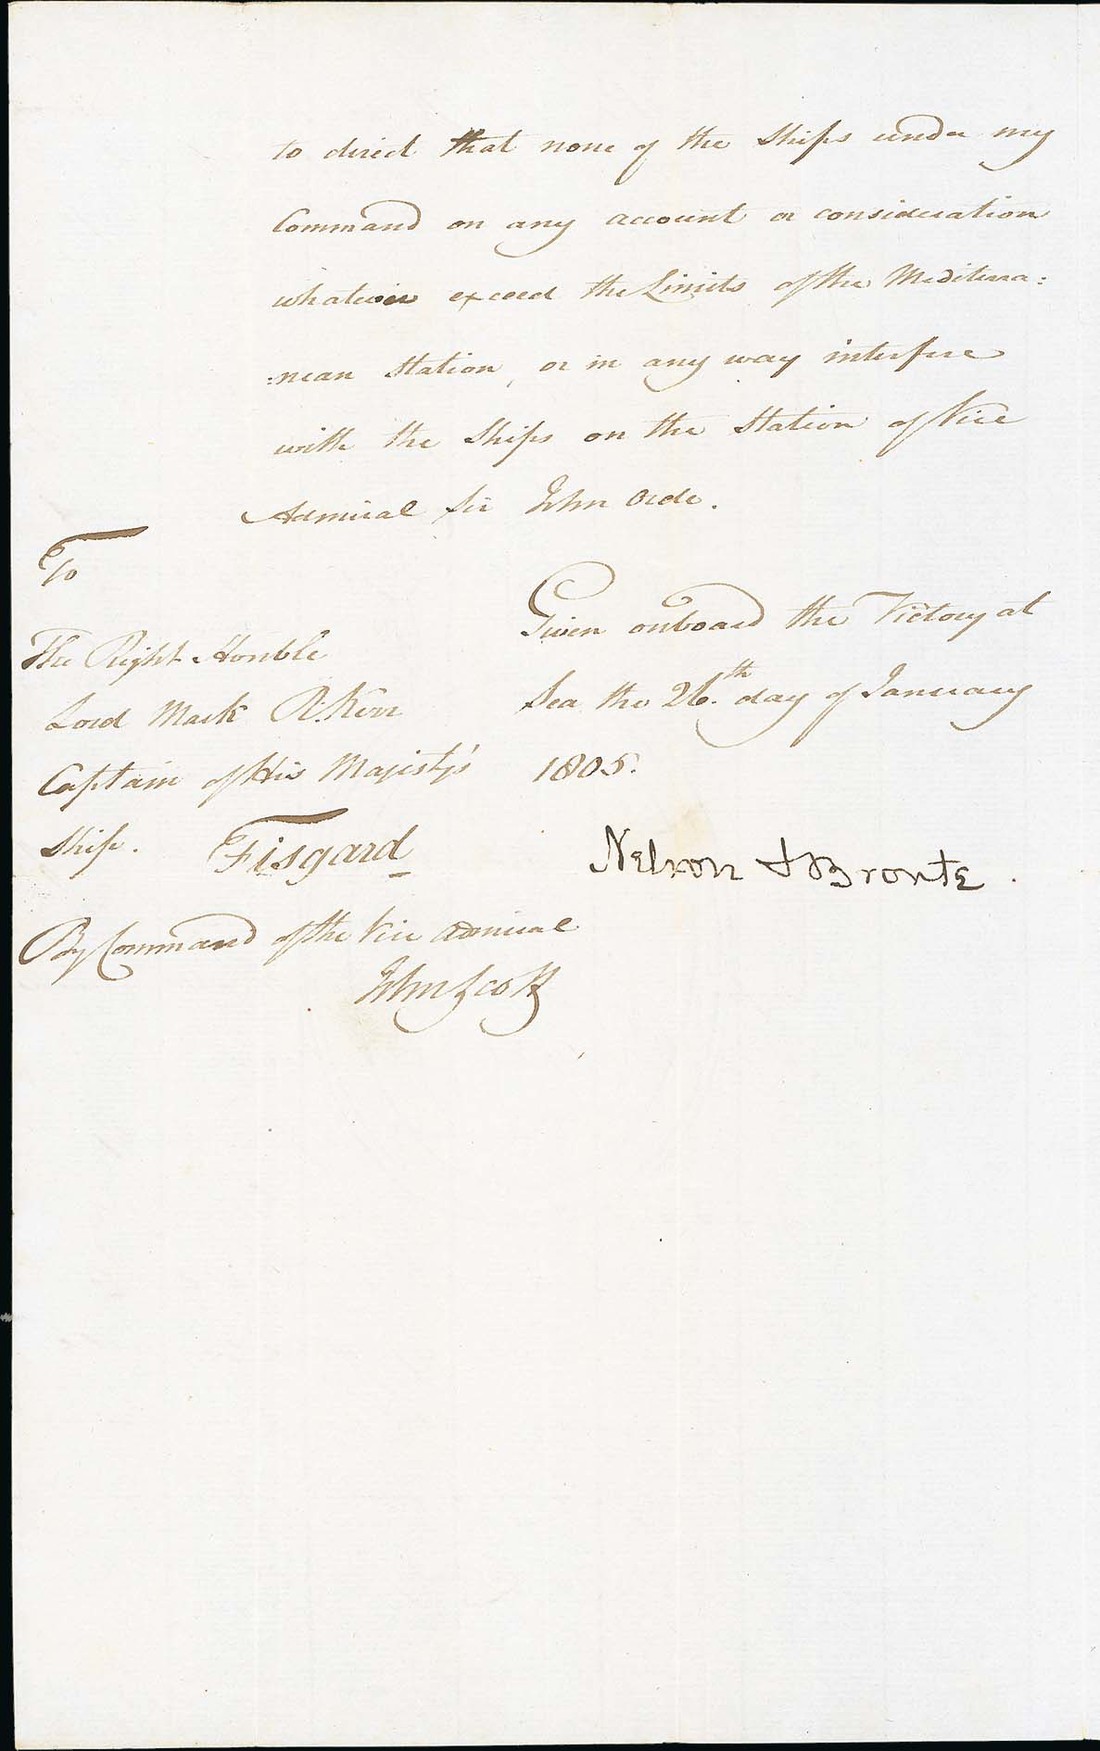 to direct that none of the Ships under my
Command on any account or consideration
whatever exceed the Limits of the Mediterra:
:nean Station, or in any way interfere
with the Ships on the Station of Vice
Admiral Sir John Orde.
To
The Right Honble
Lord Mark R. Kerr
Captain of His Majesty's
Ship. Fisgard
Given onboard the Victory at
Sea the 26.th day of January
1805.
Nelson & Bronte.
By Command of the Vice Admiral
John Scott